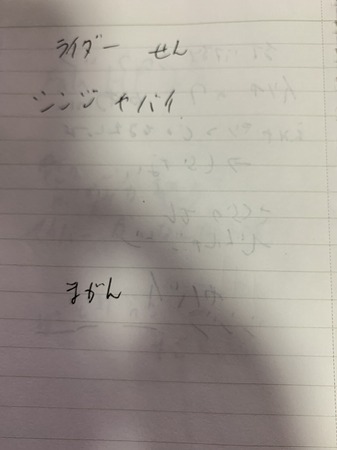 ライダー　せん
シンジ　ヤバイ
まがん